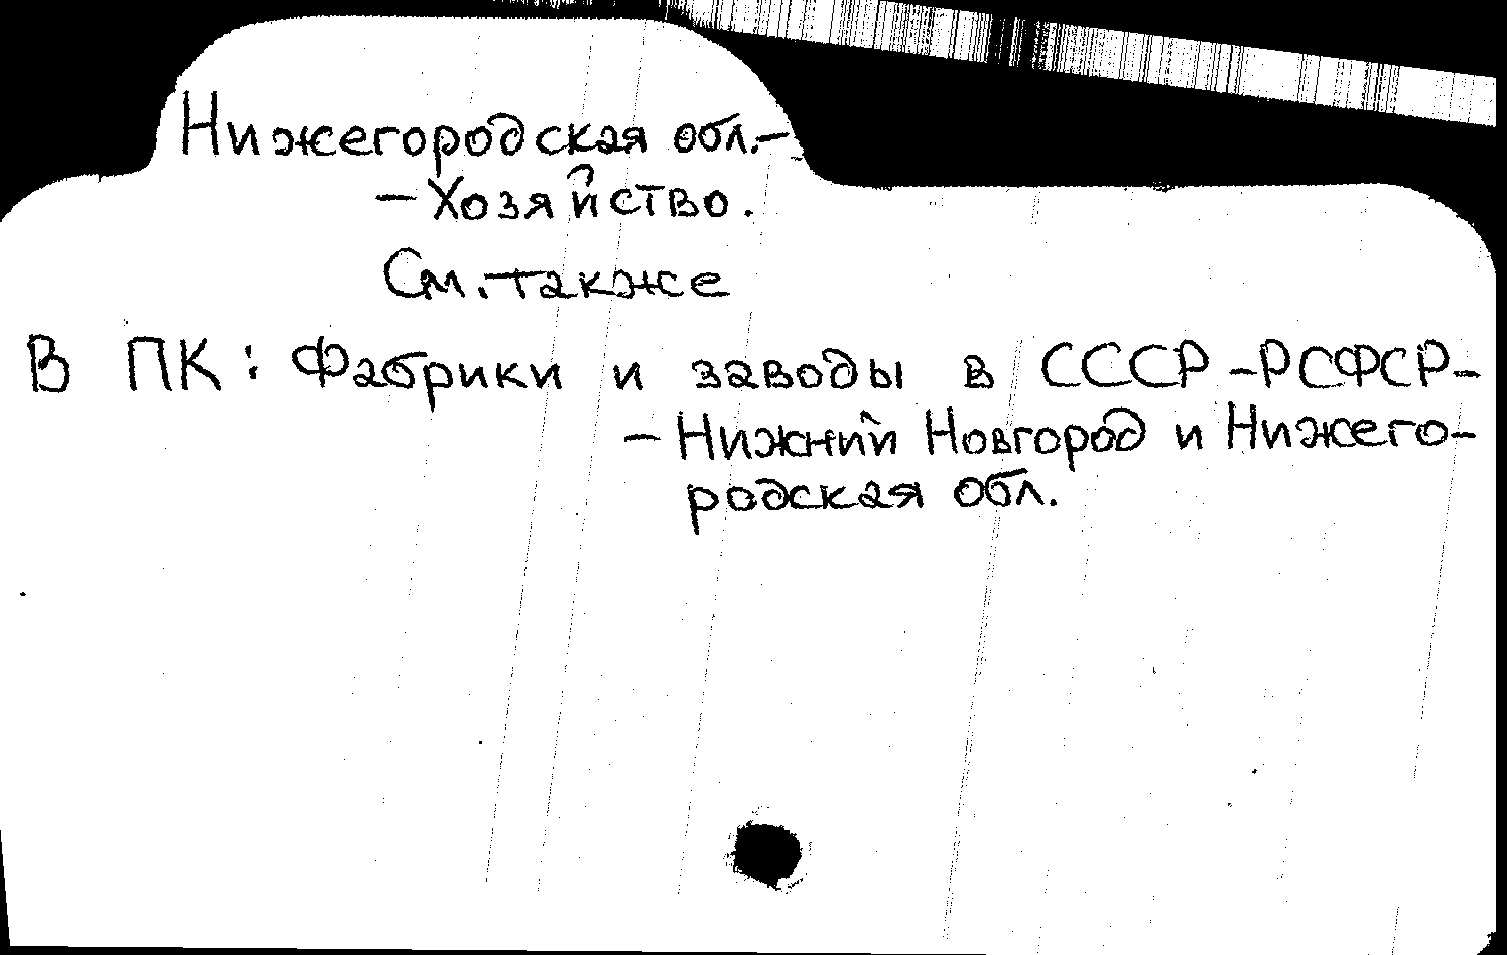 Нижегородская обл.-
- Хозяйство.
См. также
В ПК: Фабрики и заводы в СССР - РСФСР -
- Нижний Новгород и Нижего-
родская обл.